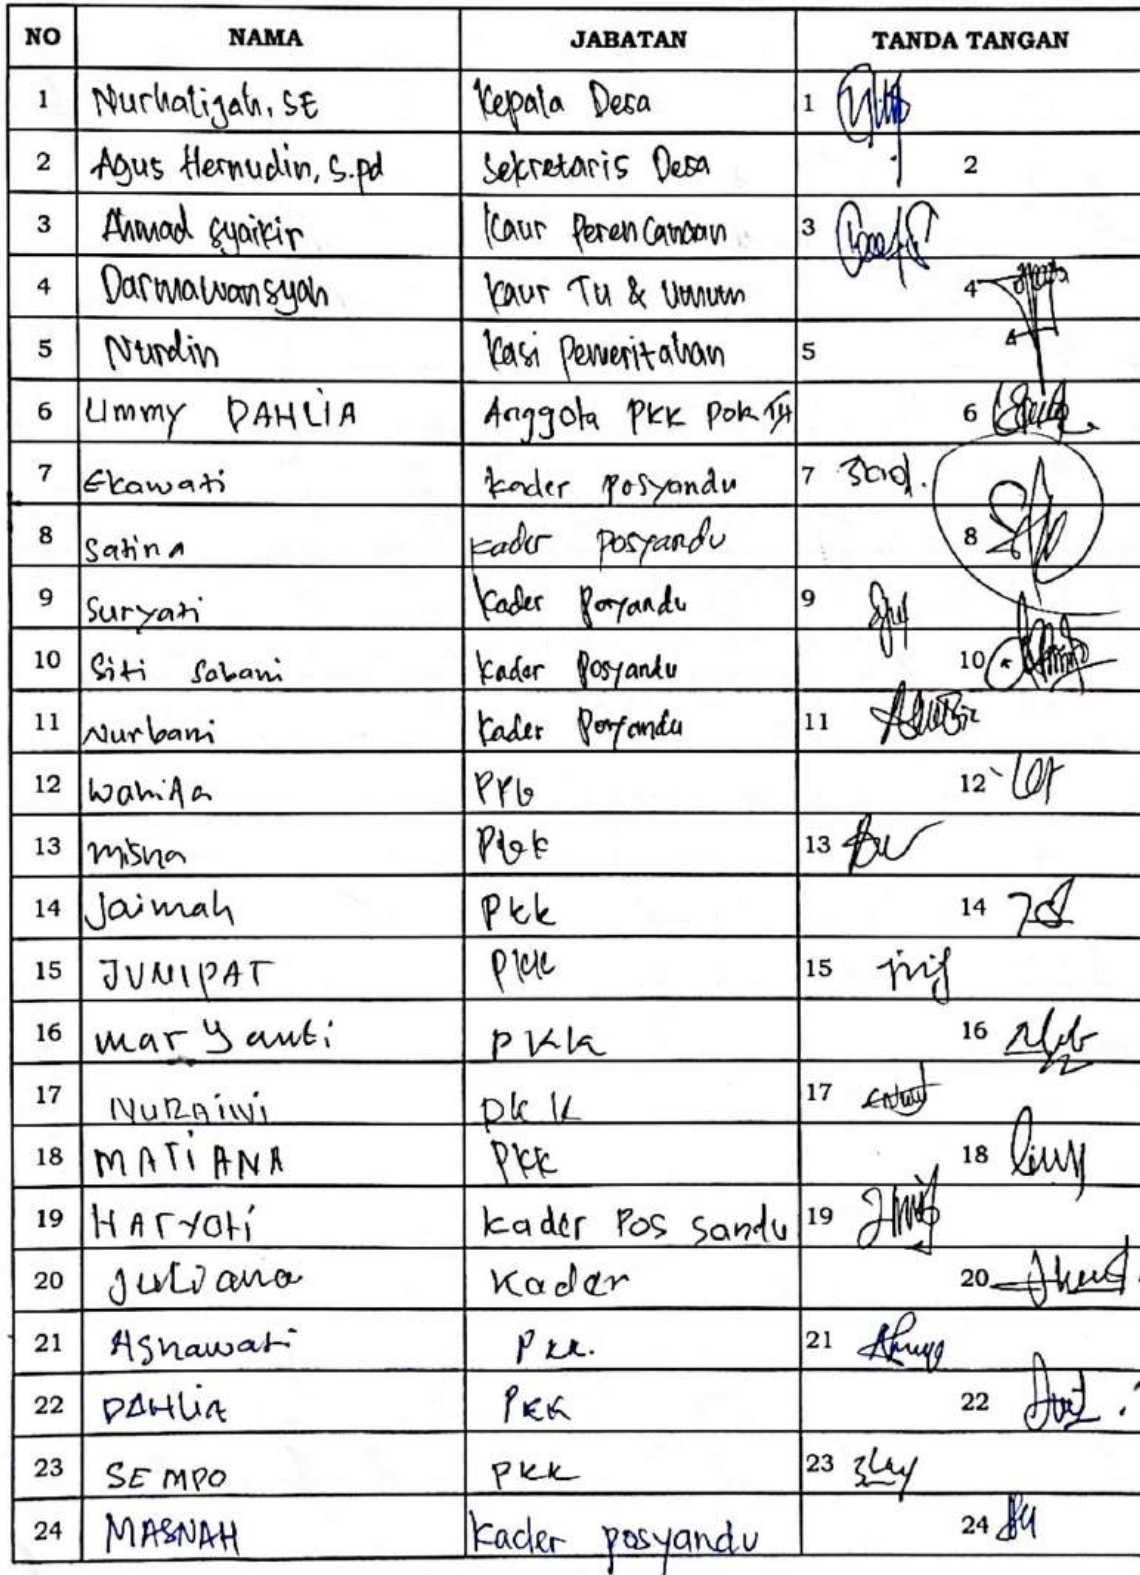 NO NAMA JABATAN TANDA TANGAN
1 Nurhalijah, SE Kepala Desa 1
2 Agus Hernudin, S.pd Sekretaris Desa 2
3 Ahmad Syaikir Kaur Perencanaan 3
4 Darmawansyah Kaur TU & Umum 4
5 Nurdin Kasi Pemeritahan 5
6 Ummy DAHLIA Anggota PKK Pok 6
7 Ekawati kader posyandu 7
8 Satina kader posyandu 8
9 Suryati Kader Posyandu 9
10 Siti Sabani Kader Posyandu 10
11 Nurbani Kader Posyandu 11
12 Wahida 12
13 Misna PKK 13
14 Jaimah PKK 14
15 JUNIPAT PKK 15
16 mar Yanti PKK 16
17 NURAINI PKK 17
18 MATIANA PKK 18
19 HARYATi Kader Pos sandu 19
20 Juliana Kader 20
21 Asnawati PKK. 21
22 DAHLIA PKK 22
23 SEMPO PKK 23
24 MASNAH Kader posyandu 24